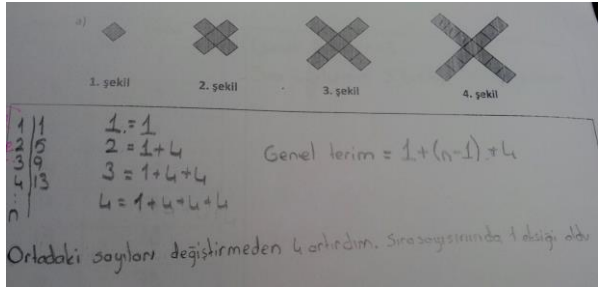 a)
1. şekil 2. şekil 3. şekil 4. şekil
1 | 1
2 | 5
3 | 9
4 | 13
:
n |
1 = 1
2 = 1+4
3 = 1+4+4
4 = 1+4+4+4
Genel terim = 1+(n-1).+4
Ortadaki sayıları değiştirmeden 4 artırdım. Sıra sayısınında 1 eksiği oldu